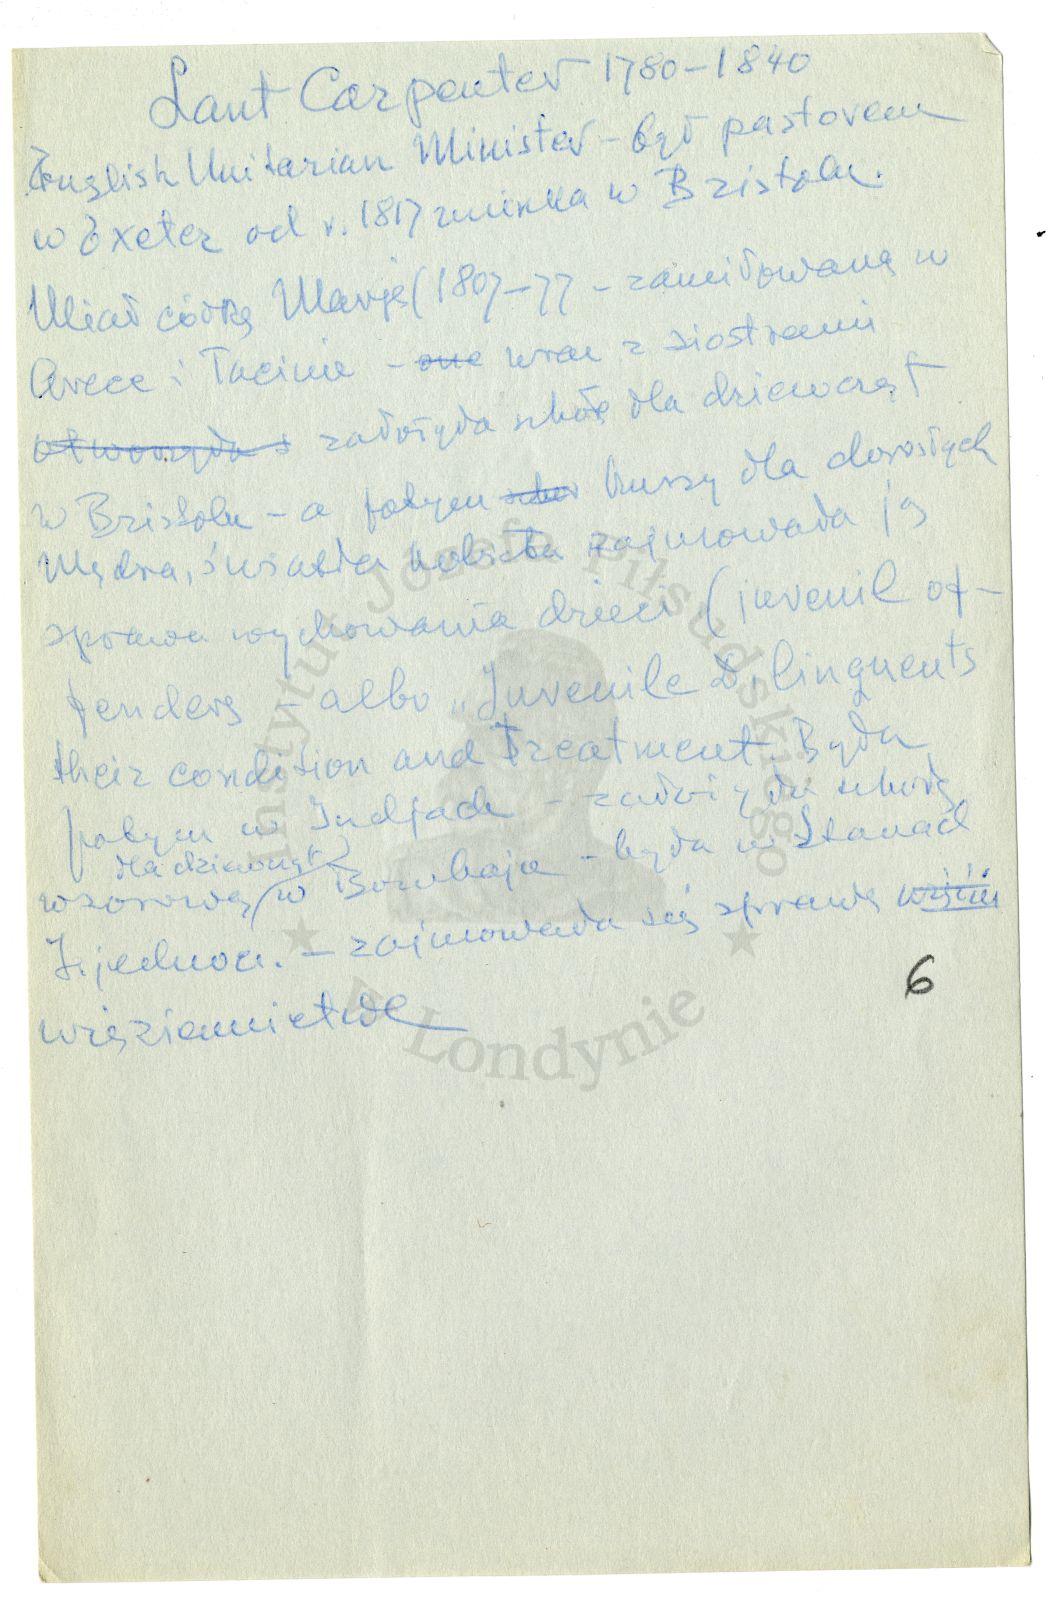 Lant Carpenter 1780–1840
English Unitarian Minister – był pastorem
w Exeter od r. 1817 mieszka w Bristolu.
Miał córkę Marję (1807–77 – zamiłowaną w
Grece i Łacinie – one wraz z siostrami
otworzyła s założyła szkołę dla dziewcząt
w Bristolu – a potym kursy dla dorosłych
Mądra, światła kobieta zajmowała ją
sprawa wychowania dzieci (juvenil of-
fenders – albo „Juvenile Delinquents
their condition and Treatment. Była
potym w Indjach – założyła szkołę
dla dziewcząt
wzorową w Bombaju – była w Stanach
Zjednocz. – zajmowała się sprawą
więziennictwa
6
Instytut Józefa Piłsudskiego
w Londynie